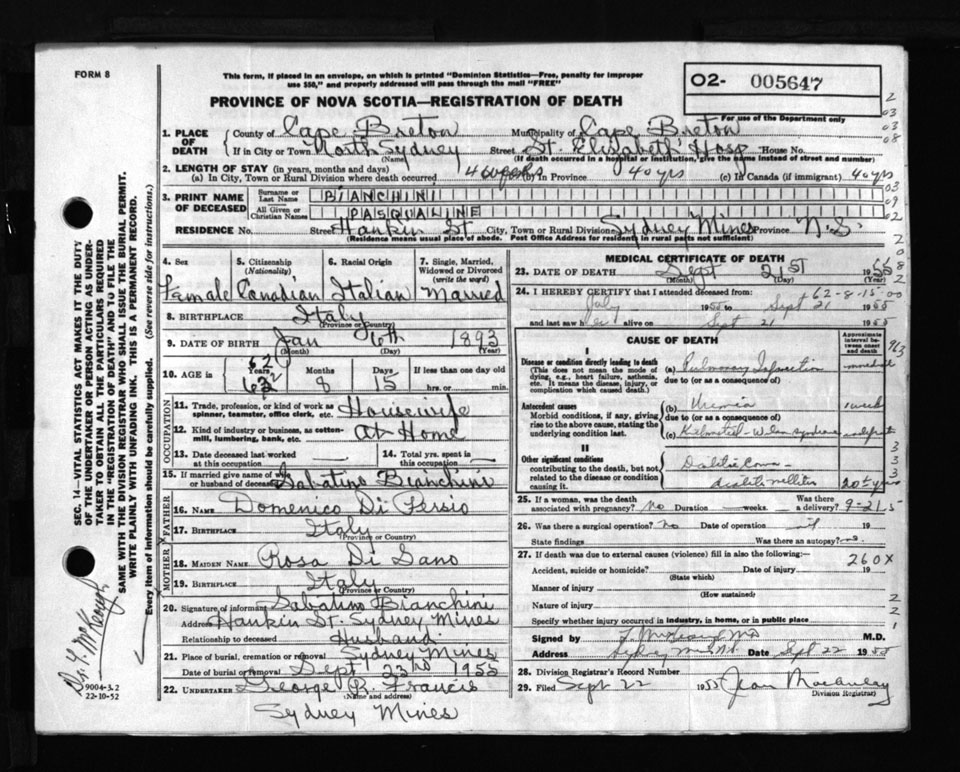 FORM 8
This form, if placed in an envelope, on which is printed "Dominion Statistics—Free, penalty for improper
use $50," and properly addressed will pass through the mail "FREE"
O2- 005647
For use of the Department only
PROVINCE OF NOVA SCOTIA—REGISTRATION OF DEATH
1. PLACE OF DEATH { County of Cape Breton Municipality of Cape Breton
If in City or Town North Sydney Street St. Elizabeth Hosp House No.
(Name) (If death occurred in a hospital or institution, give the name instead of street and number)
2. LENGTH OF STAY (in years, months and days)
(a) In City, Town or Rural Division where death occurred 4 weeks (b) In Province 40 yrs (c) In Canada (if immigrant) 40 yrs
3. PRINT NAME OF DECEASED { Surname or Last Name BIANCHINI
All Given or Christian Names PASQUALINE
RESIDENCE No. Street Hankin St. City, Town or Rural Division Sydney Mines Province N.S.
(Residence means usual place of abode. Post Office Address for residents in rural parts not sufficient)
4. Sex Female
5. Citizenship (Nationality) Canadian
6. Racial Origin Italian
7. Single, Married, Widowed or Divorced (write the word) Married
8. BIRTHPLACE Italy
(Province or Country)
9. DATE OF BIRTH Jan 6th 1893
(Month) (Day) (Year)
10. AGE Years 62 Months 8 Days 15 If less than one day old
hrs. or min.
OCCUPATION
11. Trade, profession, or kind of work as spinner, teamster, office clerk, etc. Housewife
12. Kind of industry or business, as cotton-mill, lumbering, bank, etc. At Home
13. Date deceased last worked at this occupation —
14. Total yrs. spent in this occupation —
15. If married give name of wife or husband of deceased Sabatino Bianchini
FATHER
16. Name Domenico Di Persio
17. Birthplace Italy
(Province or Country)
MOTHER
18. Maiden Name Rosa Di Sano
19. Birthplace Italy
(Province or Country)
20. Signature of informant Sabatino Bianchini
Address Hankin St. Sydney Mines
Relationship to deceased Husband
21. Place of burial, cremation or removal Sydney Mines
Date of burial or removal Sept 23rd 1955
22. UNDERTAKER George R. Francis
(Name and address)
Sydney Mines
MEDICAL CERTIFICATE OF DEATH
23. DATE OF DEATH Sept 21st 1955
(Month) (Day) (Year)
24. I HEREBY CERTIFY that I attended deceased from 62-8-15-00
July 1955 to Sept 21 1955
and last saw her alive on Sept 21 1955
CAUSE OF DEATH
Approximate interval between onset and death
I
Disease or condition directly leading to death
(This does not mean the mode of dying, e.g., heart failure, asthenia, etc. It means the disease, injury, or complication which caused death.)
(a) Pulmonary
due to (or as a consequence of)
Antecedent causes
Morbid conditions, if any, giving rise to the above cause, stating the underlying condition last.
(b) Uremia 1 week
due to (or as a consequence of)
(c) Kielmstiel-Wilson syndrome
II
Other significant conditions
contributing to the death, but not related to the disease or condition causing it.
Diabetic Coma
diabetis mellitus 20 yrs
25. If a woman, was the death associated with pregnancy? No Duration weeks. Was there a delivery?
9-21 5
26. Was there a surgical operation? No Date of operation 19
State findings Was there an autopsy? no.
27. If death was due to external causes (violence) fill in also the following:—
260X
Accident, suicide or homicide? Date of injury 19
(State which)
Manner of injury
(How sustained)
Nature of injury
Specify whether injury occurred in industry, in home, or in public place
Signed by M.D.
Address Sydney Mines N.S. Date Sept 22 1955
28. Division Registrar's Record Number
29. Filed Sept 22 1955 Jean Macaulay
Division Registrar)
SEC. 14—VITAL STATISTICS ACT MAKES IT THE DUTY
OF THE UNDERTAKER OR PERSON ACTING AS UNDER-
TAKER TO OBTAIN ALL THE PARTICULARS REQUIRED
IN THE "REGISTRATION OF DEATH" AND TO FILE THE
SAME WITH THE DIVISION REGISTRAR WHO SHALL ISSUE THE BURIAL PERMIT.
WRITE PLAINLY WITH UNFADING INK. THIS IS A PERMANENT RECORD.
Every item of information should be carefully supplied. (See reverse side for instructions.)
9004-3.2
22-10-52